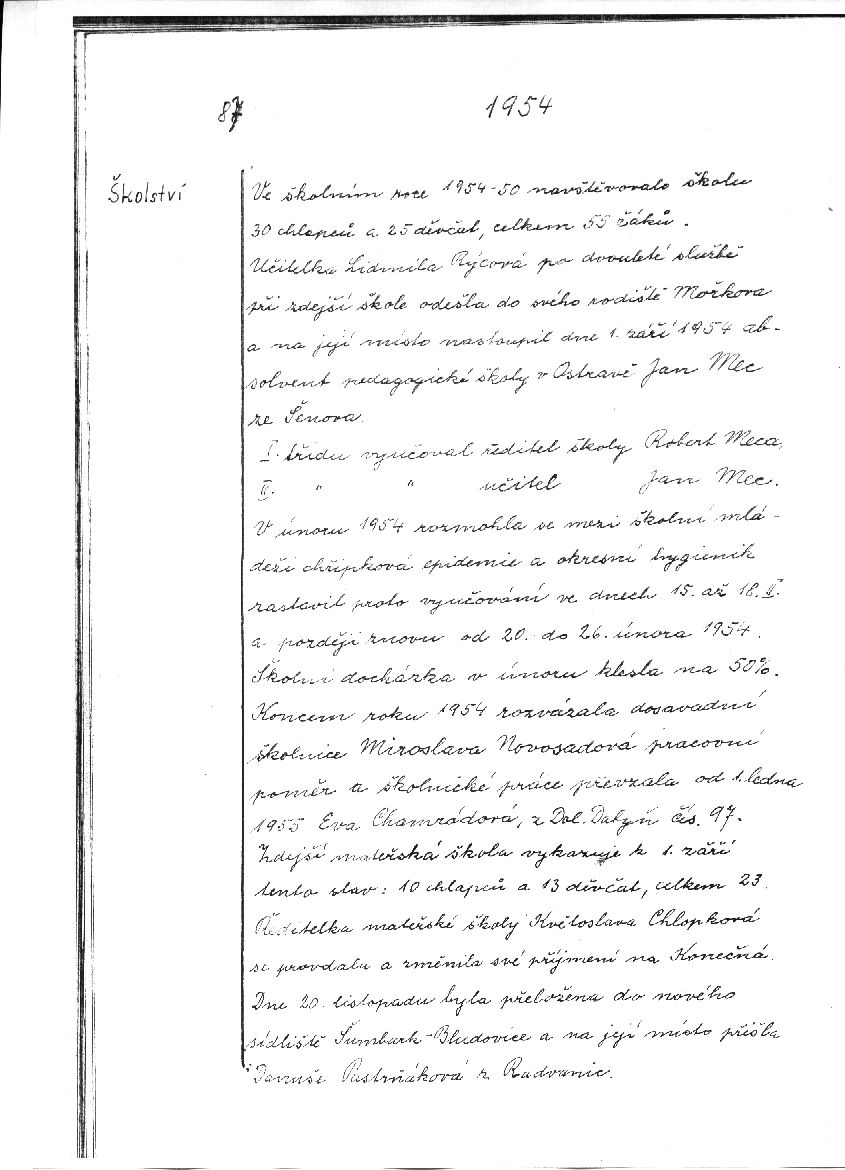 87
1954
Školství
Ve školním roce 1954-50 navštěvovalo školu
30 chlapců a 25 děvčat, celkem 55 žáků.
Učitelka Lidmila Rýcová po dvouleté službě
při zdejší škole odešla do svého rodiště Mořkova
a na její místo nastoupil dne 1. září 1954 ab-
solvent pedagogické školy v Ostravě Jan Mec
ze Šenova.
I. třídu vyučoval ředitel školy Robert Meca,
II. " " učitel Jan Mec.
V únoru 1954 rozmohla se mezi školní mlá-
deží chřipková epidemie a okresní hygienik
zastavil proto vyučování ve dnech 15. až 18. II.
a později znovu od 20. do 26. února 1954.
Školní docházka v únoru klesla na 50%.
Koncem roku 1954 rozvázala dosavadní
školnice Miroslava Novosadová pracovní
poměr a školnické práce převzala od 1. ledna
1955 Eva Chamrádová, z Dol. Datyň čís. 97.
Zdejší mateřská škola vykazuje k 1. září
tento stav: 10 chlapců a 13 děvčat, celkem 23.
Ředitelka mateřské školy Květoslava Chlopková
se provdala a změnila své příjmení na Konečná.
Dne 20. listopadu byla přeložena do nového
sídliště Šumbark-Bludovice a na její místo přišla
Danuše Pastrňáková z Radvanic.